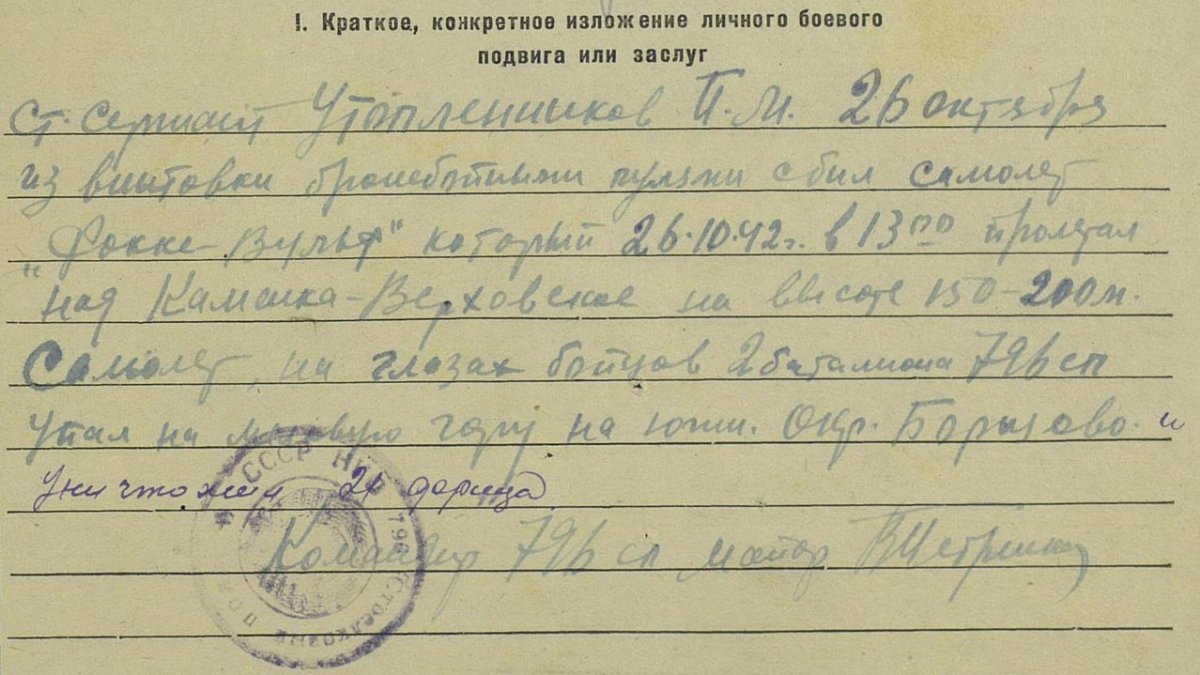 I. Краткое, конкретное изложение личного боевого
подвига или заслуг
Ст. Сержант Утопленников П.М. 26 октября
из винтовки бронебойными пулями сбил самолет
"Фокке-Вульф" который 26.10.42г. в 13 00 пролетал
над Каменка-Верховское на высоте 150-200м.
Самолет, на глазах бойцов 2 баталиона 796 сп
упал на гору на южн. Окр. Борисово. и
уничтожил 21 фрица
СССР НКО 796 СТРЕЛКОВЫЙ ПОЛК
Командир 796 сп майор